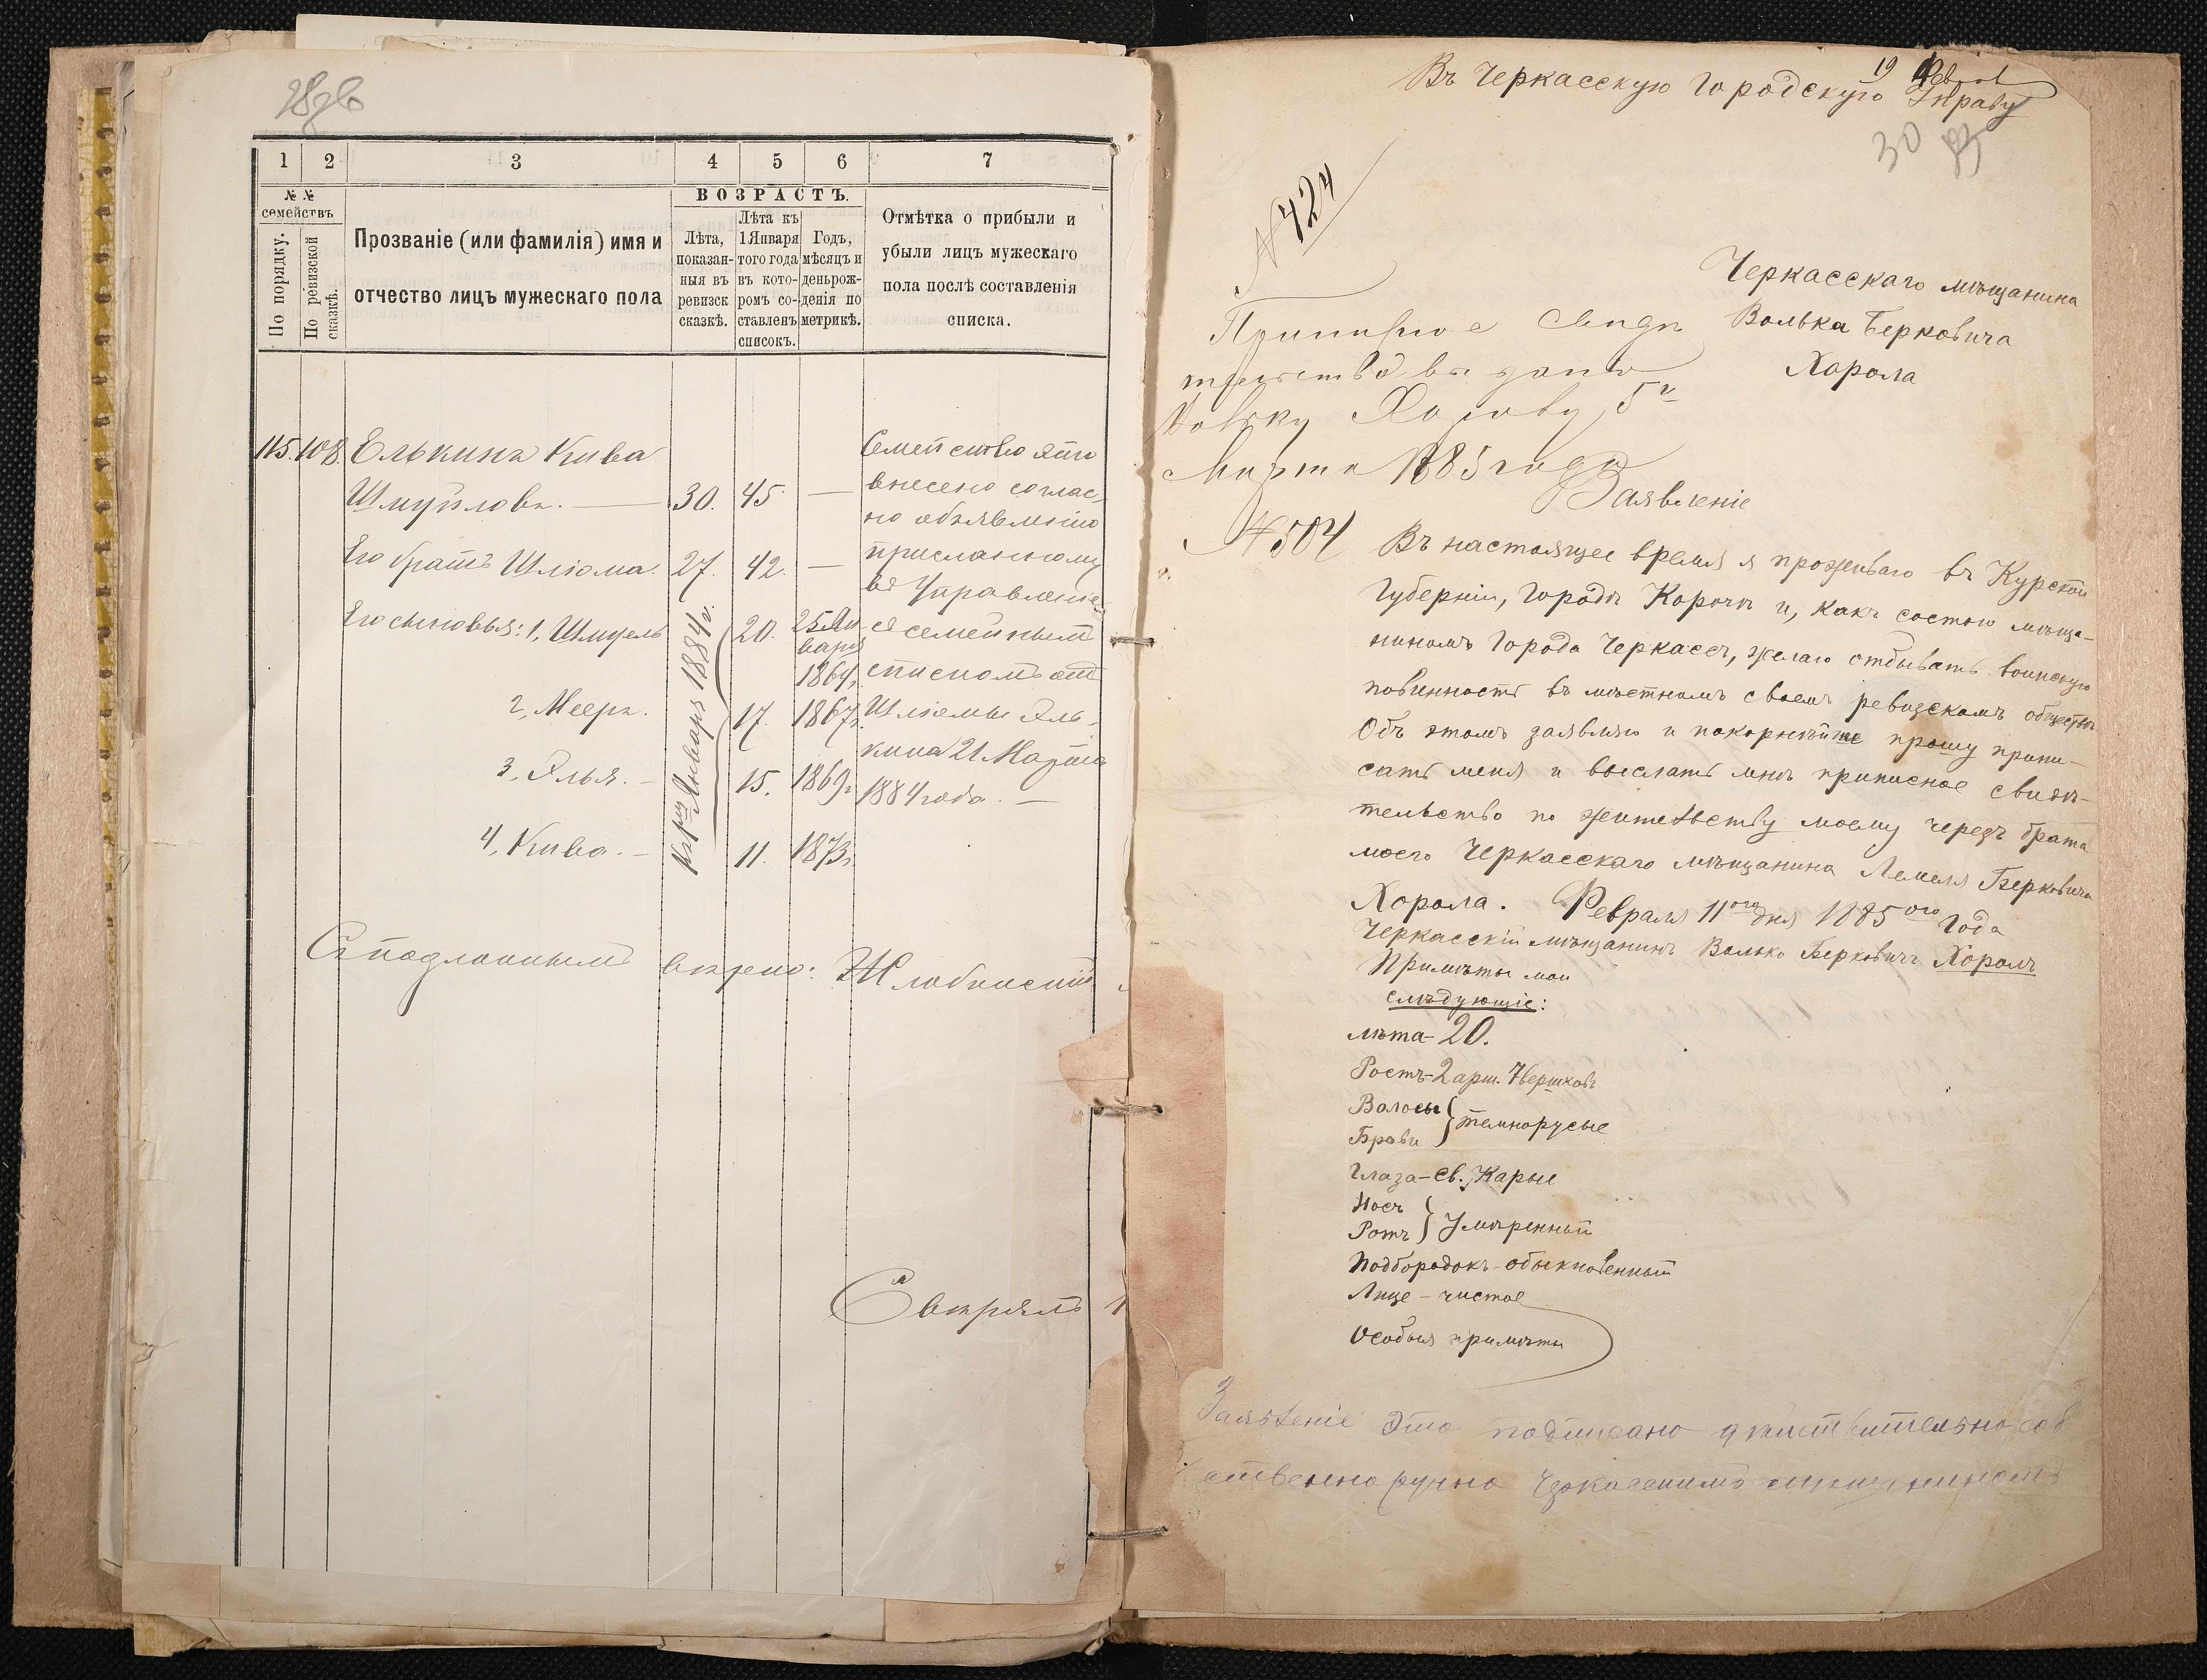 1 2 3 4 5 6 7
№ №
семействъ
По порядку.
По ревизской сказкѣ.
Прозваніе (или фамилія) имя и
отчество лицъ мужескаго пола
ВОЗРАСТЪ.
Лѣта,
показан-
ныя въ
ревизск
сказкѣ.
Лѣта къ
1 Января
того года
въ кото-
ромъ со-
ставленъ
списокъ.
Годъ,
мѣсяцъ и
день рож-
денія по
метрикѣ.
Отмѣтка о прибыли и
убыли лицъ мужескаго
пола послѣ составленія
списка.
115. 108. Елькинъ Кива
Шмуйловъ. — 30. 45. —
Его братъ Шліома. 27. 42. —
Его сыновья: 1, Шмуель 20. 25 Января 1864г.
2, Мееръ. 17. 1867г.
3, Элья. — 15. 1869г.
4, Кива. — 11. 1873г.
Къ 1му Января 1884 г.
Семейство это
внесено соглас-
но объявленію
присланному
въ Управленіе
съ семейнымъ
спискомъ отъ
Шліомы Эль-
кина 21 Марта
1884 года. —
Съ подлиннымъ вѣрно: Жлобинскій
Свѣрялъ
Въ Черкасскую Городскую Управу
19 Фев
30
№ 424
Черкасскаго мѣщанина
Волька Берковича
Хорола
Приписное свидѣ
тельство выдано
Вольку Хоролу 5го
Марта 1885 года
№ 504
Заявленіе
Въ настоящее время я проживаю въ Курской
Губерніи, Городѣ Корочѣ и, какъ состою мѣща-
ниномъ Города Черкассъ, желаю отбывать воинскую
повинность въ мѣстномъ своемъ ревизскомъ обществѣ
Объ этомъ заявляю и покорнѣйше прошу припи-
сать меня и выслать мнѣ приписное свидѣ-
тельство по жительству моему черезъ брата
моего Черкасскаго мѣщанина Лемеля Берковича
Хорола. Февраля 11ого дня 1885ого Года
Черкасскій мѣщанинъ Волько Берковичъ Хоролъ
Примѣты мои
слѣдующіе:
лѣта - 20.
Ростъ - 2 арш. 7 вершковъ
Волосы
Брови } темнорусые
Глаза - Св. Карые
Носъ
Ротъ } Умѣренный
Подбородокъ - обыкновенный
Лице - чистое
Особыя примѣты
Заявленіе это подписано дѣйствительно соб
ственноручно Черкасскимъ мѣщаниномъ